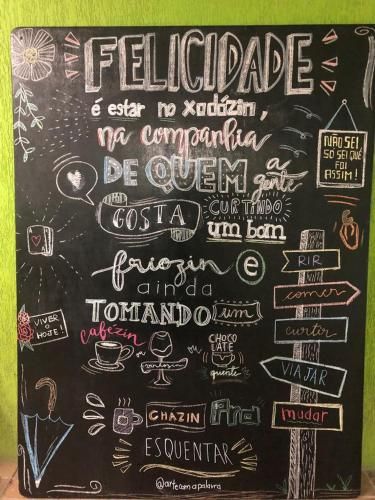 FELICIDADE
é estar no xodózin,
na companhia
DE QUEM a gente
GOSTA CURTINDO
um bom
friozin e
ainda
TOMANDO um
cafezin ou vinhozin ou CHOCOLATE quente
CHAZIN Pra
ESQUENTAR
@artecomapalavra
NÃO SEI,
SÓ SEI QUE
FOI
ASSIM!
VIVER
O
HOJE!
RIR
comer
curtir
VIAJAR
mudar